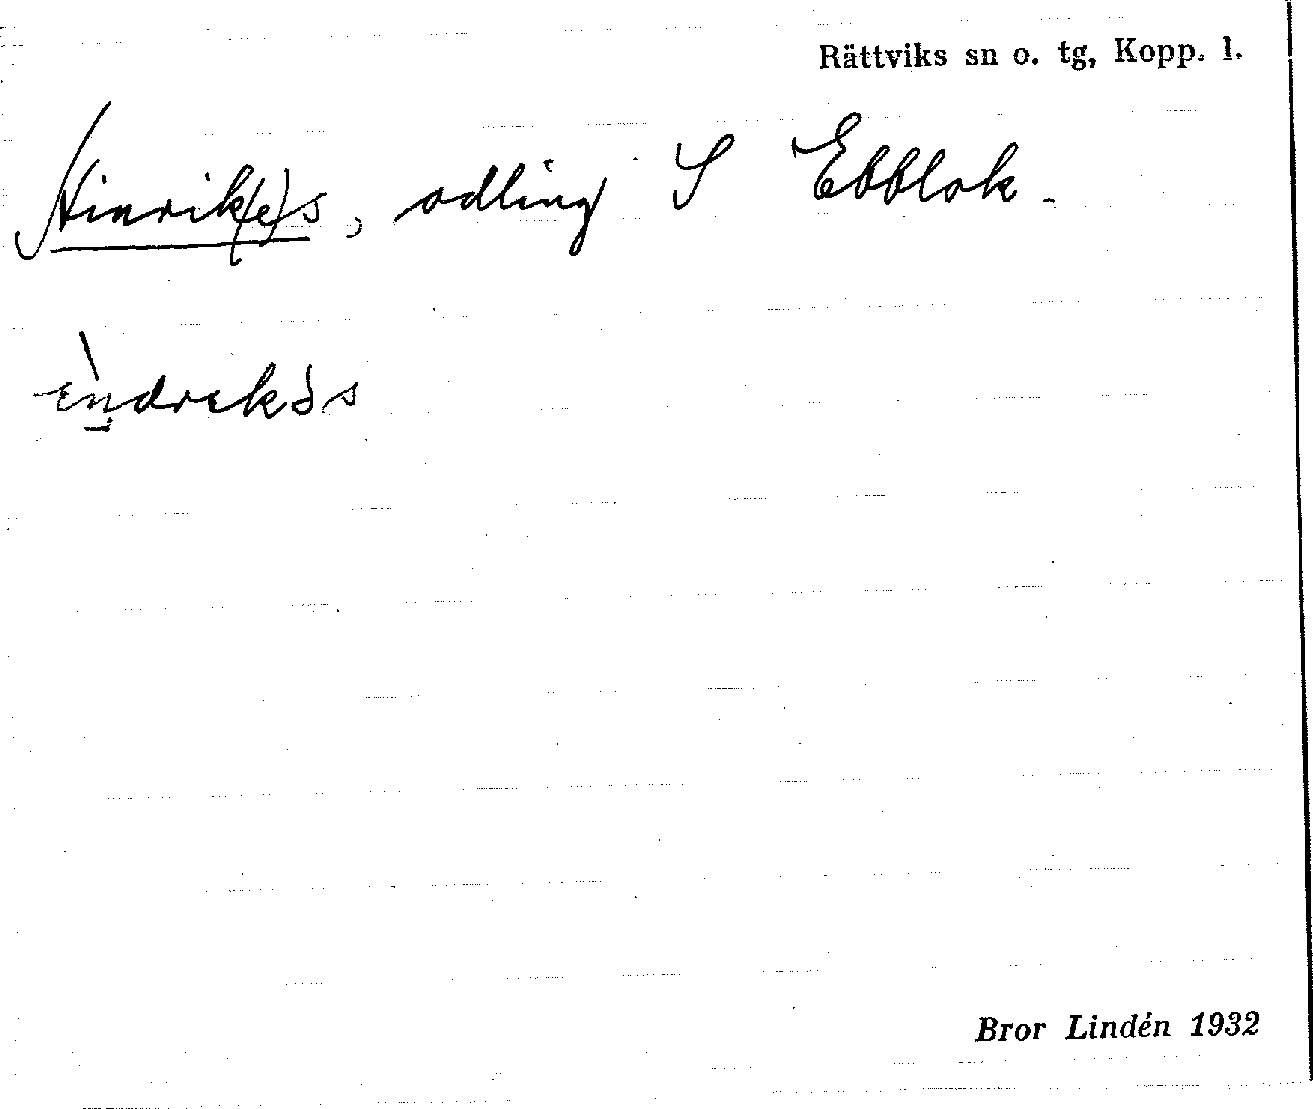 Rättviks sn o. tg, Kopp. l.
Hinrik(e)s, odling S Ebblok.
èndrekəs
Bror Lindén 1932